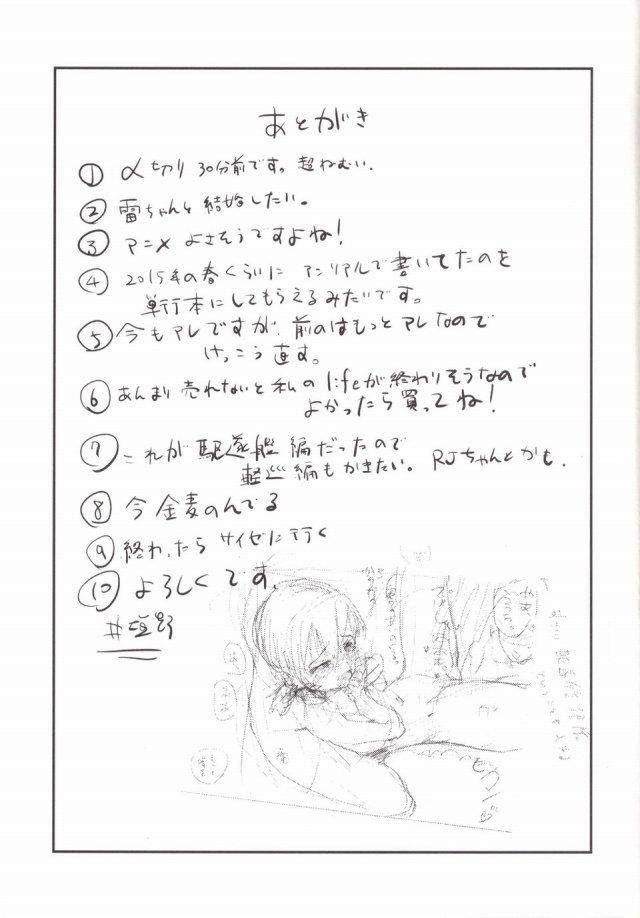 あとがき
① 〆切り 30分前です。超ねむい.
② 雷ちゃんと結婚したい。
③ アニメ よさそうですよね!
④ 2015年の春くらいに アンリアルで書いてたのを
単行本にしてもらえるみたいです。
⑤ 今もアレですが、前のはもっとアレなので
けっこう直す。
⑥ あんまり売れないと私のlifeが終わりそうなので
よかったら買ってね!
⑦ これが駆逐艦編だったので
軽巡編もかきたい。RJちゃんとかも.
⑧ 今金麦のんでる
⑨ 終わったら サイゼに行く
⑩ よろしくです.